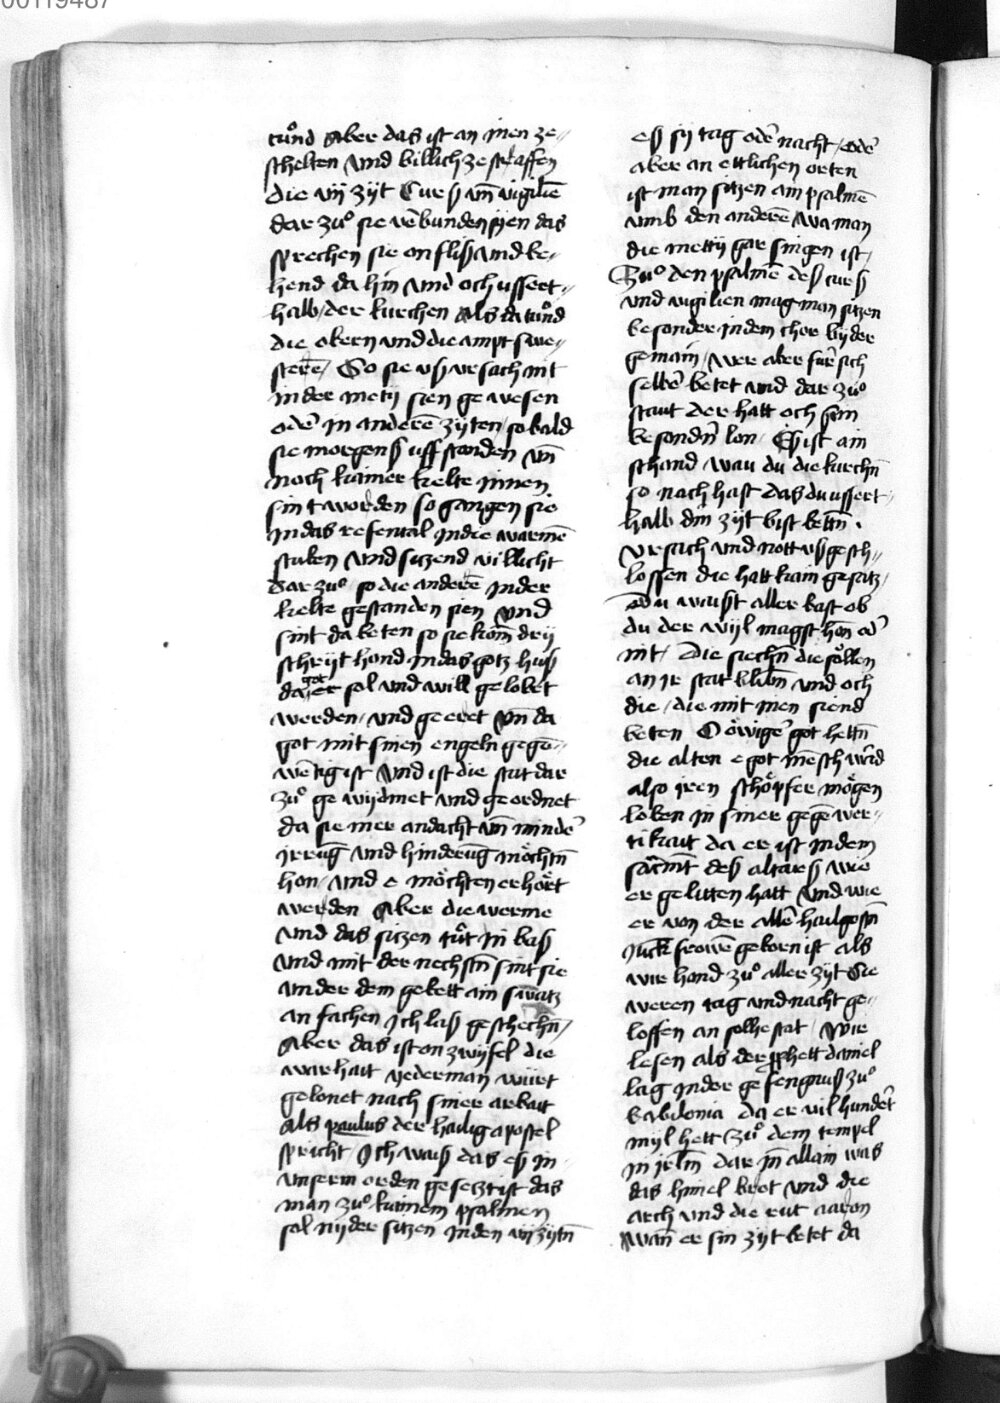 00119487
tuͦnd Aber das ist an inen ze„
schelten vnd billich ze straffen
die vij zyt Curß vn̄ vigiliē
dar zuͦ sie verbunden sÿen das
sprechen sie on fliß vnd be„
hend da hin vnd och vssert„
halb der kirchen Als da tuͦnd
die obern vnd die ampt swe„
sterē / So sie vß vrsach nit
in der metÿ sien gewesen
oder in anderē zÿten / so bald
sie morgenß vff standen vn̄
noch kainer kelte innen
sint worden so gangen sie
in das refental in die warmē
stuben vnd sitzend villicht
dar zuͦ / so die anderē in der
kelte gestanden sien vnd
sint da beten so sie kom̄ drÿ
schrÿt hond in das gotz huß
da got er sol vnd will gelobet
werden / vnd geeret vn̄ da
got mit sinen engeln gegē„
wertig ist vnd ist die stat dar
zuͦ gewÿdmet vnd geordnet
da sie mer andacht vn̄ minder
irrūg vnd hinderūg möchtn̄
hon / vnd e möchten erhört
werden Aber die werme
vnd das sitzen tuͦt in baß
vnd mit der nechstn̄ sint sie
vnder dem gebett ain swatz
an fachen Ich laß geschechn̄ /
Aber das ist on zwÿfel die
warhait yederman würt
gelonet nach siner arbait
Als paulus der hailig apostel
spricht / Ich waiß das eß in
vnserm orden gesetzt ist das
man zuͦ kainem psalmen
sol nÿder sitzen in den vij zÿtn̄
eß sÿ tag oder nacht / oder
aber an ettlichen orten
ist man sitzen ain psalmē
vmb den anderē wa man
die mettÿ gar singen ist /
Zuͦ den psalmē deß curß
vnd vigilien mag man sitzen
besonder in dem chor bÿ der
gemain / wer aber für sich
selber betet vnd dar zuͦ
staut der hatt och sin
besondrn̄ lon / Eß ist ain
schand wau du die kirchn̄
so nach hast das du vssert„
halb din zÿt bist bettn̄ .
vrsach vnd nott vßgesch„
lossen die hatt kain gesatz /
du waist aller bast ob
du der wÿl magst hon oder
nit / Die siechn̄ die söllen
an ir stat blibn̄ vnd och
die / die mit inen siend
beten O öwiger got hettn̄
die alten e got mēsch wird
also iren schöpfer mögen
loben in siner gegēwer„
tikait da er ist in dem
sacm̄t deß altarß wie
er gelitten hatt vnd wie
er von der aller hailgostn̄
Junckfrowē geborn ist als
wir hond zuͦ aller zÿt Sie
weren tag vnd nacht ge„
loffen an solhe stat / Wir
lesen als der pphett daniel
lag in der gefengnuß zuͦ
babilonia da er vil hundert
mÿl hett zuͦ dem tempel
in jrlm̄ dar jn̄ allain was
das himel brot vnd die
arch vnd die ruͦt aaron
Wan̄ er sin zÿt betet da